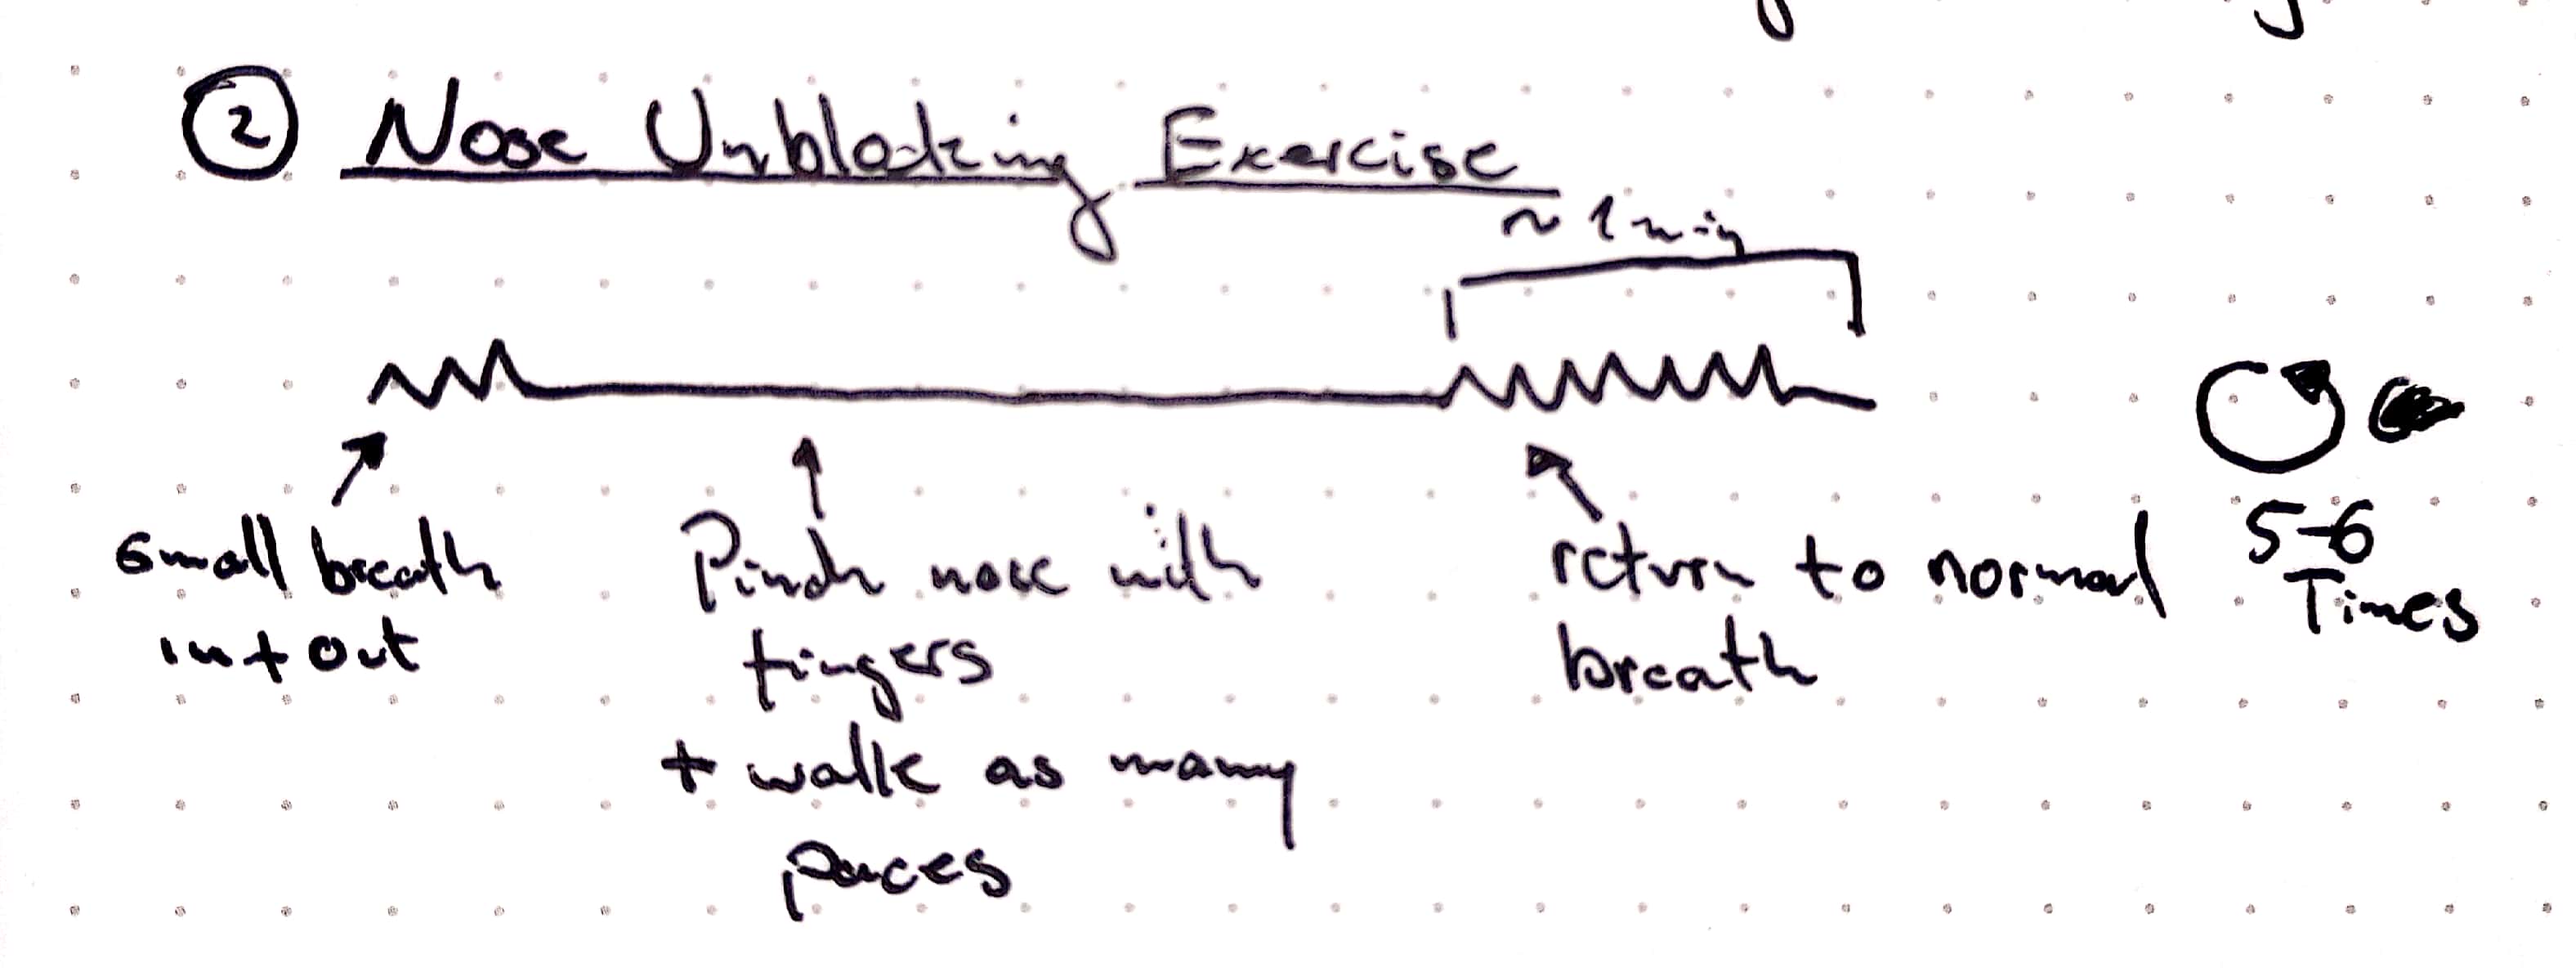 ② Nose Unblocking Exercise
~ 1 min
small breath
in + out
Pinch nose with
fingers
+ walk as many
paces
return to normal
breath
5-6
Times